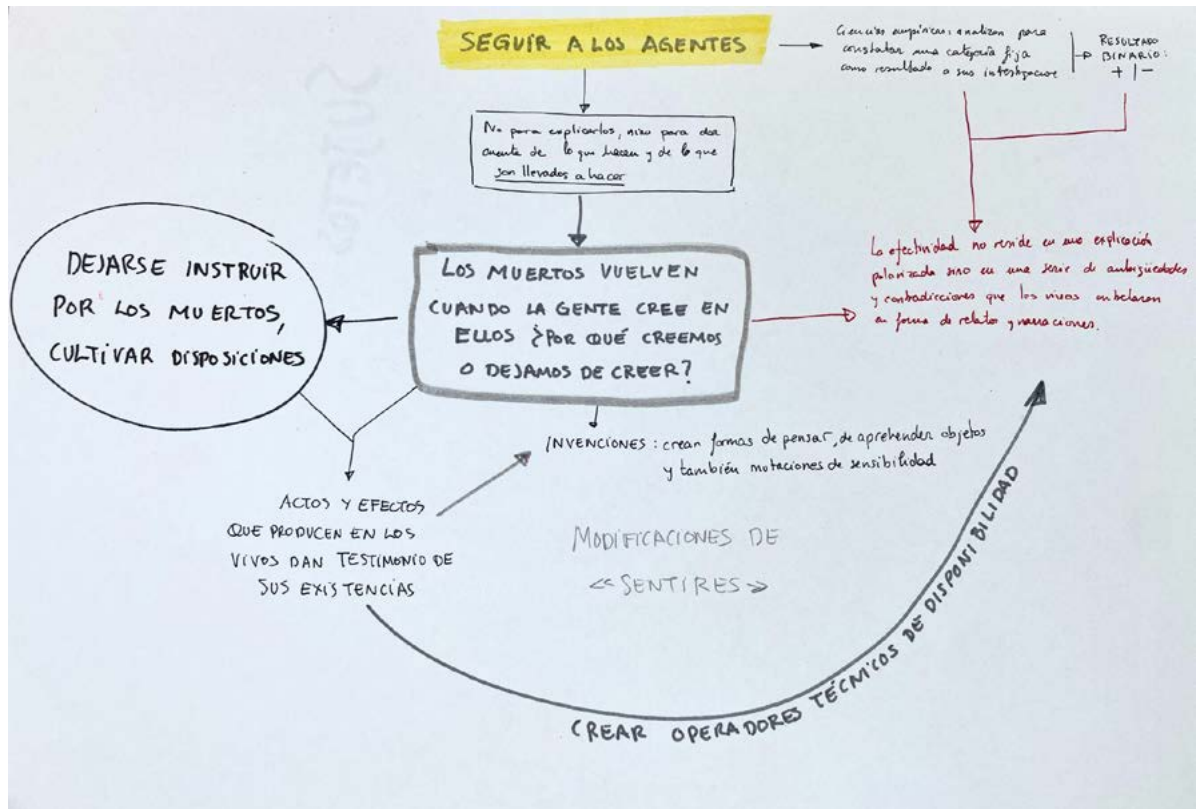 SEGUIR A LOS AGENTES
Ciencias empíricas: analizan para
constatar una categoría fija
como resultado a sus investigaciones
RESULTADO
BINARIO:
+ | -
No para explicarlos, sino para dar
cuenta de lo que hacen y de lo que
son llevados a hacer
DEJARSE INSTRUIR
POR LOS MUERTOS,
CULTIVAR DISPOSICIONES
LOS MUERTOS VUELVEN
CUANDO LA GENTE CREE EN
ELLOS ¿POR QUÉ CREEMOS
O DEJAMOS DE CREER?
La efectividad no reside en una explicación
polarizada sino en una serie de ambigüedades
y contradicciones que los vivos
en forma de relatos y narraciones.
INVENCIONES: crean formas de pensar, de aprehender objetos
y también mutaciones de sensibilidad
ACTOS Y EFECTOS
QUE PRODUCEN EN LOS
VIVOS DAN TESTIMONIO DE
SUS EXISTENCIAS
MODIFICACIONES DE
<<SENTIRES>>
CREAR OPERADORES TÉCNICOS DE DISPONIBILIDAD